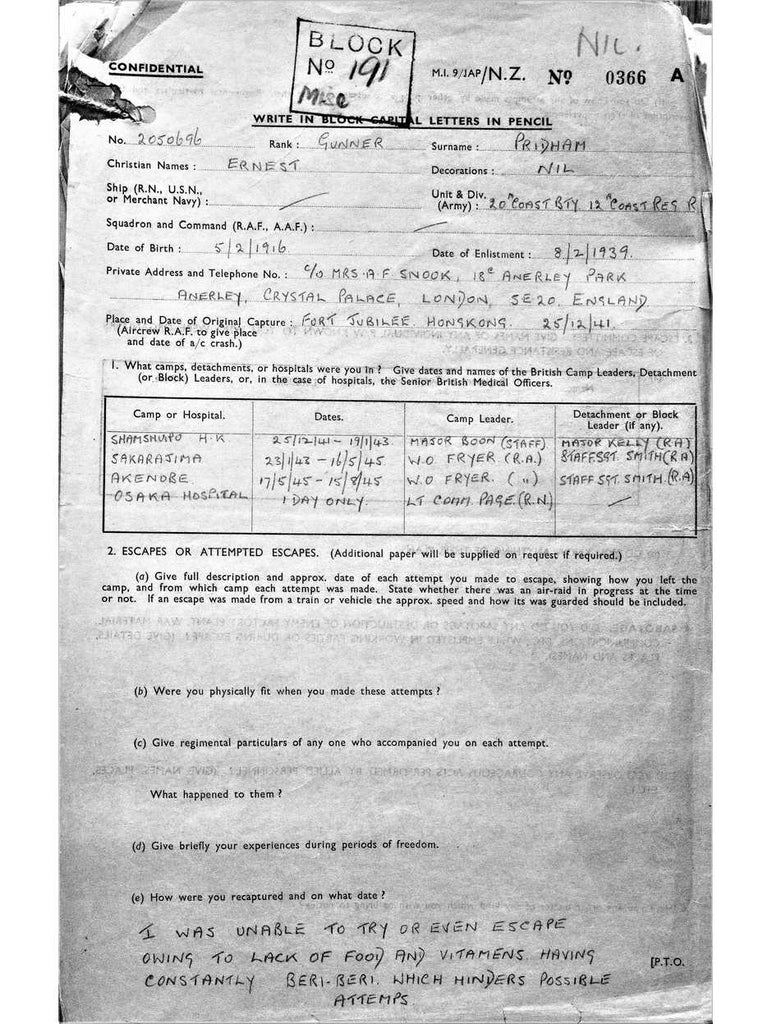 BLOCK
No 191
Misc
NIL.
CONFIDENTIAL
M.I. 9/JAP/N.Z. No 0366 A
WRITE IN BLOCK CAPITAL LETTERS IN PENCIL
No. 2050696 Rank : GUNNER Surname : PRIDHAM
Christian Names : ERNEST Decorations : NIL
Ship (R.N., U.S.N.,
or Merchant Navy) :
Unit & Div.
(Army) : 20th COAST BTY 12th COAST REG R
Squadron and Command (R.A.F., A.A.F.) :
Date of Birth : 5/2/1916 Date of Enlistment : 8/2/1939.
Private Address and Telephone No. : C/O MRS. A.F SNOOK, 18e ANERLEY PARK
ANERLEY, CRYSTAL PALACE, LONDON, SE20. ENGLAND.
Place and Date of Original Capture : FORT JUBILEE. HONGKONG. 25/12/41.
(Aircrew R.A.F. to give place
and date of a/c crash.)
1. What camps, detachments, or hospitals were you in ? Give dates and names of the British Camp Leaders, Detachment
(or Block) Leaders, or, in the case of hospitals, the Senior British Medical Officers.
Camp or Hospital. Dates. Camp Leader. Detachment or Block
Leader (if any).
SHAMSHUIPO H.K 25/12/41 - 19/1/43 MAJOR BOON (STAFF) MAJOR KELLY (RA)
SAKARAJIMA 23/1/43 - 16/5/45 W.O FRYER (R.A.) STAFF SGT. SMITH (RA)
AKENOBE 17/5/45 - 15/8/45 W.O FRYER. ( " ) STAFF SGT. SMITH. (R.A)
OSAKA HOSPITAL 1 DAY ONLY. LT COMM. PAGE. (R.N)
2. ESCAPES OR ATTEMPTED ESCAPES. (Additional paper will be supplied on request if required.)
(a) Give full description and approx. date of each attempt you made to escape, showing how you left the
camp, and from which camp each attempt was made. State whether there was an air-raid in progress at the time
or not. If an escape was made from a train or vehicle the approx. speed and how its was guarded should be included.
(b) Were you physically fit when you made these attempts ?
(c) Give regimental particulars of any one who accompanied you on each attempt.
What happened to them ?
(d) Give briefly your experiences during periods of freedom.
(e) How were you recaptured and on what date ?
I WAS UNABLE TO TRY OR EVEN ESCAPE
OWING TO LACK OF FOOD AND VITAMENS HAVING
CONSTANTLY BERI-BERI. WHICH HINDERS POSSIBLE
ATTEMPS
[P.T.O.